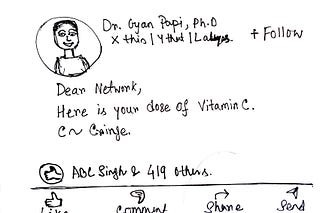 Dr. Gyan Papi, Ph.D
+ Follow
X this | Y that |
Dear Network,
Here is your dose of Vitamin C.
C ~ Cringe.
ABC Singh & 419 others.
Like Comment Share Send